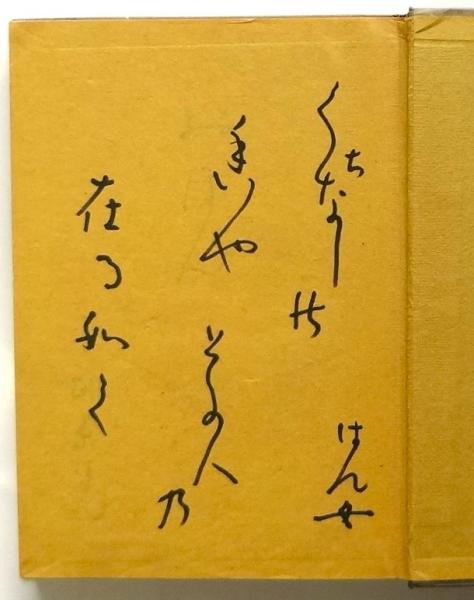 くちなし能
香いや その人乃
在る如く
はん女